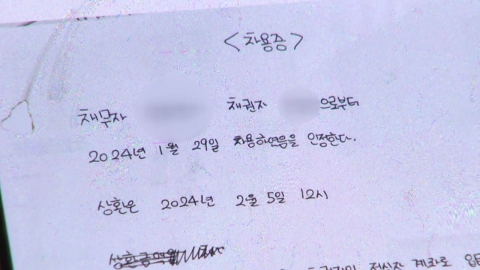 <차용증>
채무자 채권자 으로부터
2024년 1월 29일 차용하였음을 인정한다.
상환은 2024년 2월 5일 12시
계좌로